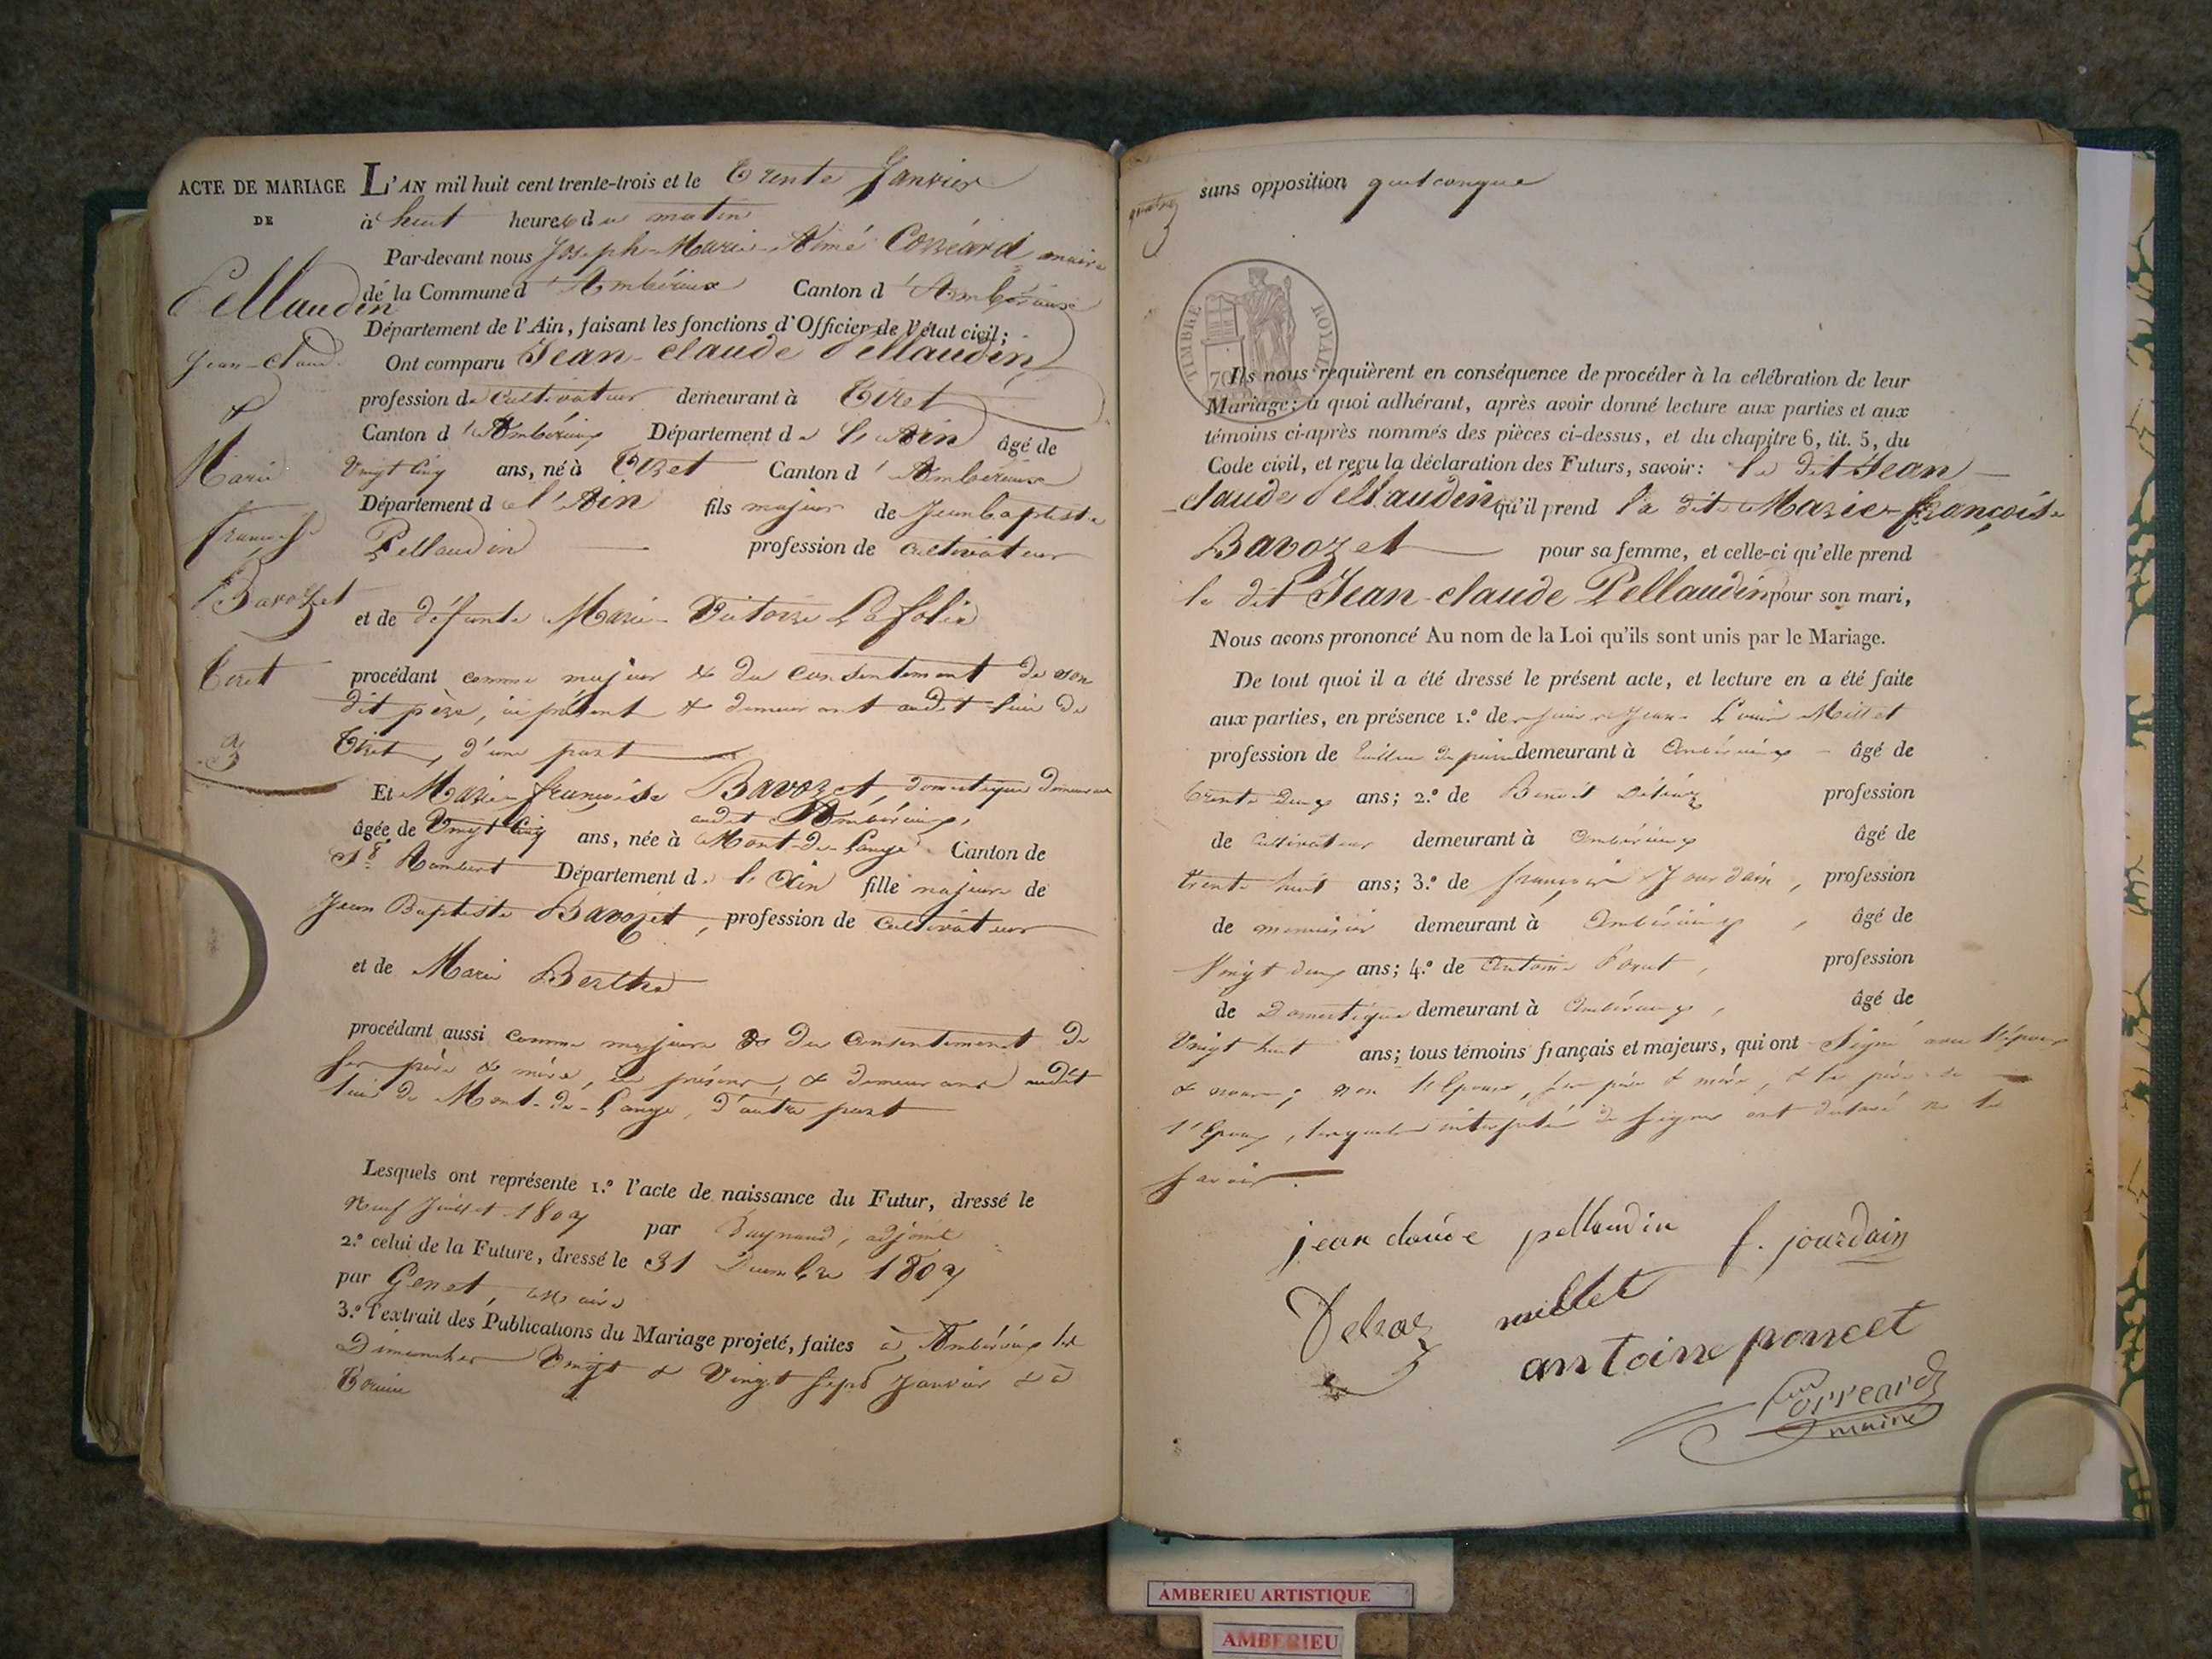 ACTE DE MARIAGE
DE
Pellaudin
Jean-Claude
&
Marie
françoise
Bavozet
Tiret
3
L'AN mil huit cent trente-trois et le Trente Janvier
à huit heures du matin
Par-devant nous Joseph-Marie-Aimé Corréard, maire
de la Commune d'Ambérieux Canton d'Ambérieux
Département de l'Ain, faisant les fonctions d'Officier de l'état civil;
Ont comparu Jean-claude Pellaudin
profession de Cultivateur demeurant à Tiret
Canton d'Ambérieux Département de l'Ain âgé de
Vingt Cinq ans, né à Tiret Canton d'Ambérieux
Département de l'Ain fils majeur de Jean Baptiste
Pellaudin profession de cultivateur
et de défunte Marie-Victoire Lafolie
procédant comme majeur & du consentement de son
dit père, ici présent & demeurant audit lieu de
Tiret, d'une part
Et Marie françoise Bavozet, domestique demeurant
audit Ambérieux,
âgée de Vingt Cinq ans, née à Mont-de-Lange Canton de
St Rambert Département de l'Ain fille majeure de
Jean Baptiste Bavozet, profession de Cultivateur
et de Marie Berthe
procédant aussi comme majeure & du Consentement de
ses père & mère, ici présens, & demeurant audit
lieu de Mont-de-Lange, d'autre part
Lesquels ont représente 1.º l'acte de naissance du Futur, dressé le
Neuf Juillet 1807 par Raynaud, adjoint
2.º celui de la Future, dressé le 31 Decembre 1807
par Genet, Maire
3.º l'extrait des Publications du Mariage projeté, faites à Ambérieux les
Dimanches Vingt & Vingt sept Janvier & à
sans opposition quelconque
TIMBRE ROYAL
70
Ils nous requièrent en conséquence de procéder à la célébration de leur
Mariage; à quoi adhérant, après avoir donné lecture aux parties et aux
témoins ci-après nommés des pièces ci-dessus, et du chapitre 6, tit. 5, du
Code civil, et reçu la déclaration des Futurs, savoir: le dit Jean
-claude Pellaudin qu'il prend la dite Marie-françoise
Bavozet pour sa femme, et celle-ci qu'elle prend
le dit Jean-claude Pellaudin pour son mari,
Nous avons prononcé Au nom de la Loi qu'ils sont unis par le Mariage.
De tout quoi il a été dressé le présent acte, et lecture en a été faite
aux parties, en présence 1.º de Jean Louis Millet
profession de tailleur de pierre demeurant à Ambérieux âgé de
trente deux ans; 2.º de Benoit profession
de Cultivateur demeurant à Ambérieux âgé de
trente huit ans; 3.º de françois Jourdain, profession
de menuisier demeurant à Ambérieux, âgé de
Vingt deux ans; 4.º de Antoine Poncet, profession
de Domestique demeurant à Ambérieux, âgé de
Vingt huit ans; tous témoins français et majeurs, qui ont Signé avec l'époux
& nous; non l'Epouse, ses père & mère, & le père de
l'Epoux, lesquels interpelés de signer ont déclaré ne le
savoir.
jean claude pellaudin f. jourdain
millet
antoine poncet
Correard
maire
AMBERIEU ARTISTIQUE
AMBERIEU